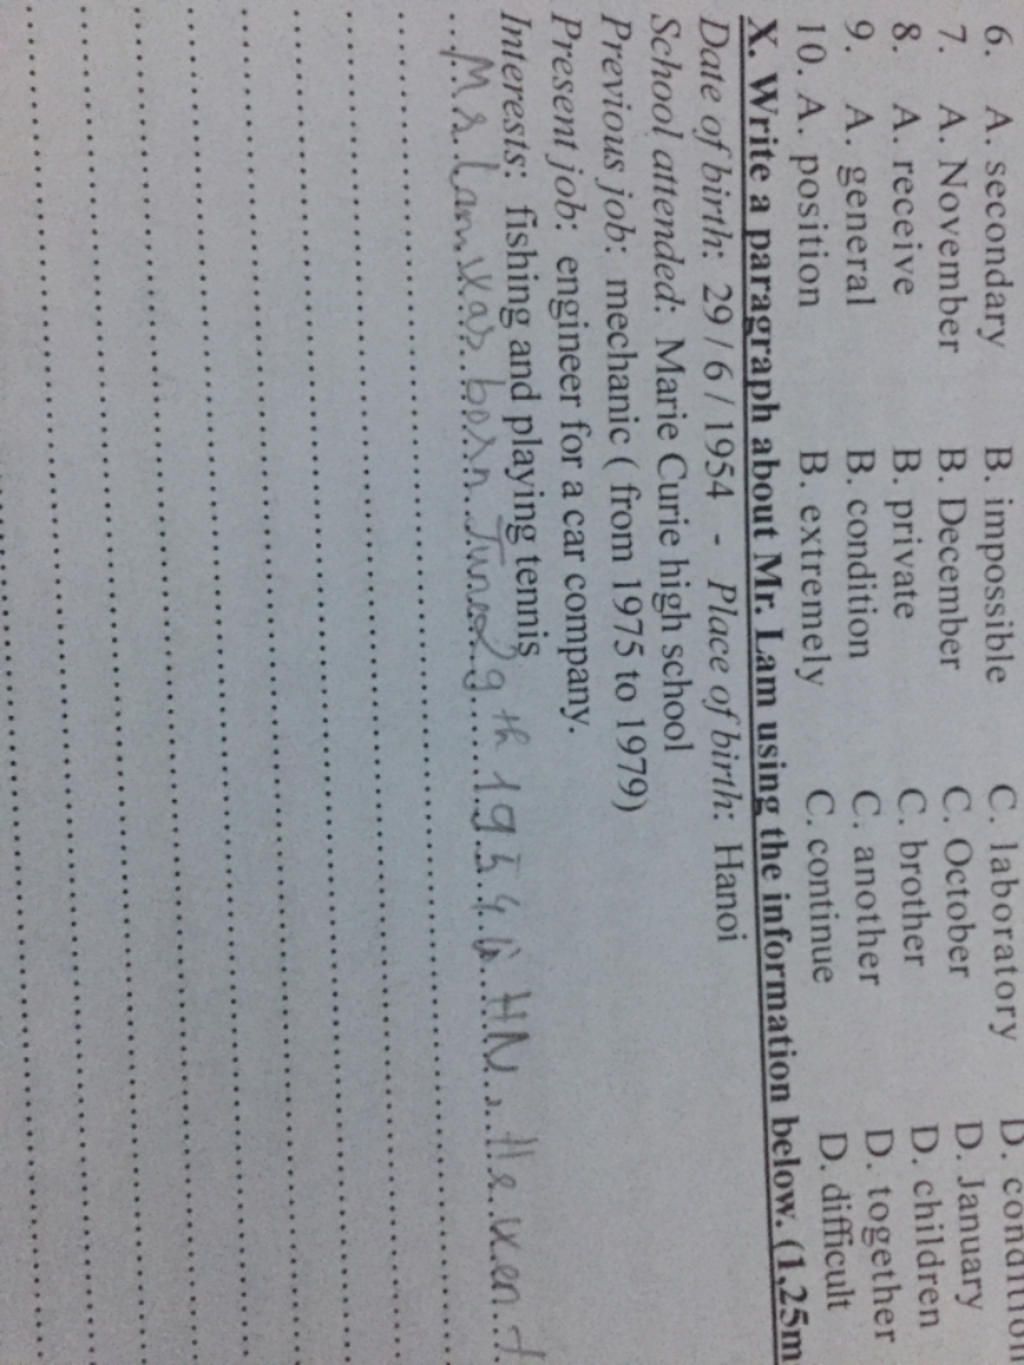 6. A. secondary B. impossible C. laboratory D. condition
7. A. November B. December C. October D. January
8. A. receive B. private C. brother D. children
9. A. general B. condition C. another D. together
10. A. position B. extremely C. continue D. difficult
X. Write a paragraph about Mr. Lam using the information below. (1,25m
Date of birth: 29 / 6 / 1954 - Place of birth: Hanoi
School attended: Marie Curie high school
Previous job: mechanic ( from 1975 to 1979)
Present job: engineer for a car company.
Interests: fishing and playing tennis
Mr Lam was born June 29th 1954 in HN. He went